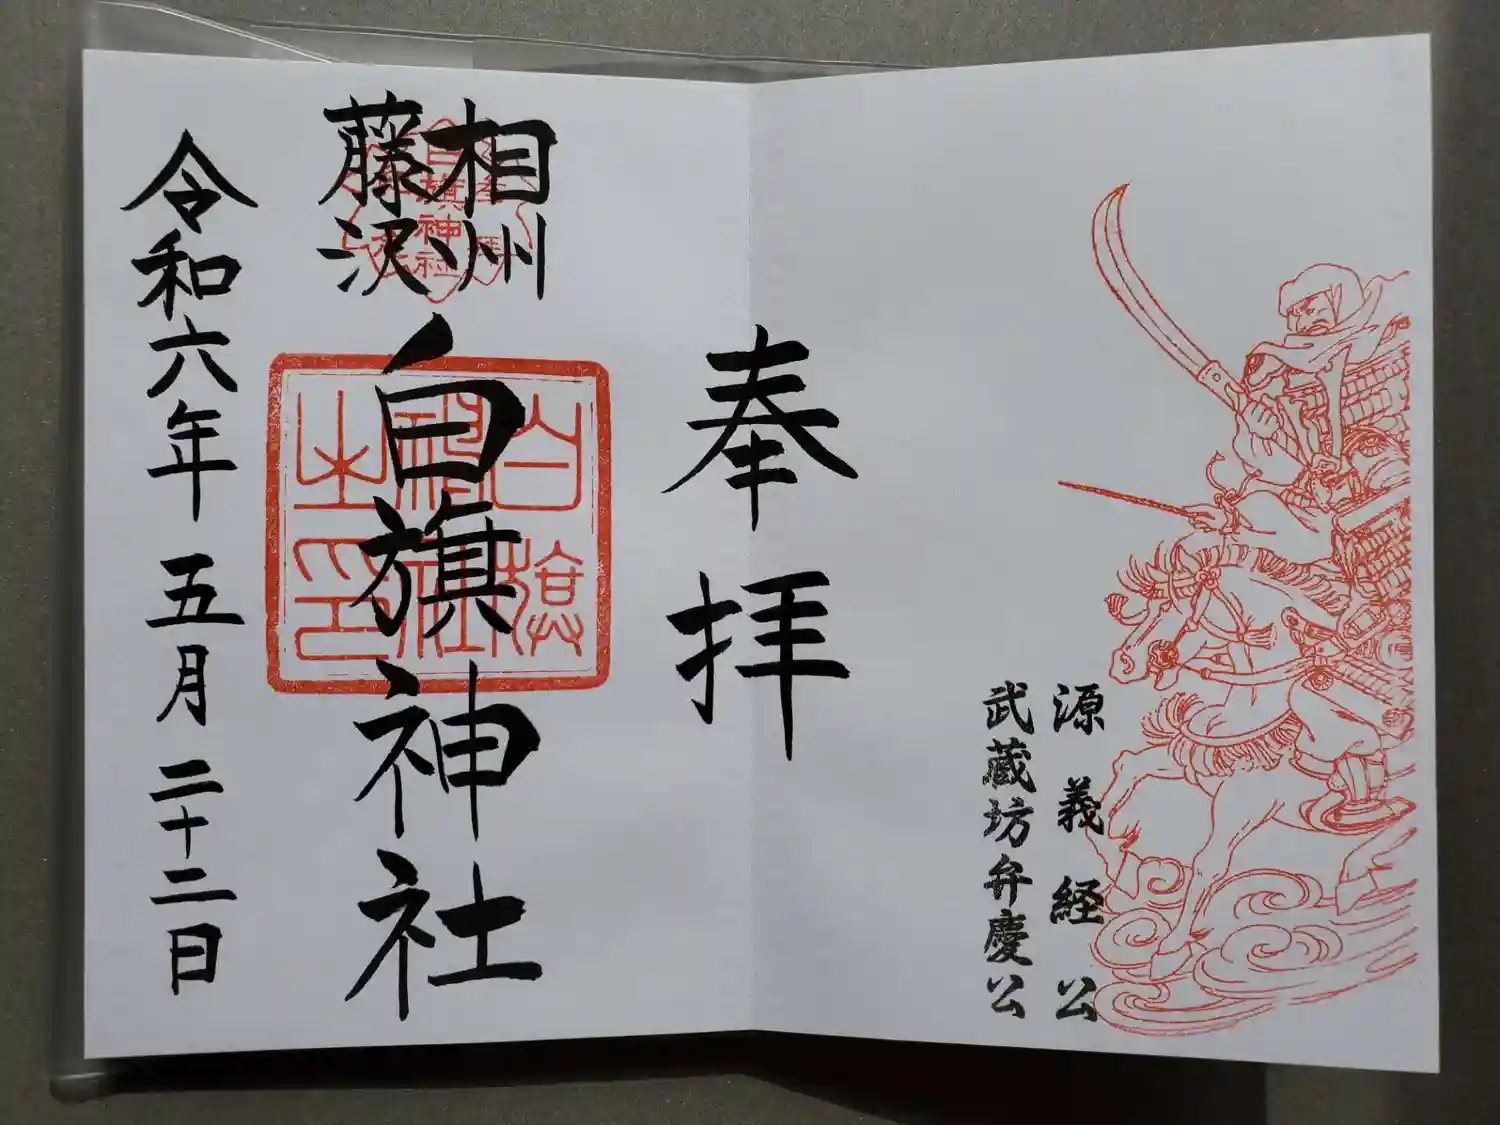 源義経公
武蔵坊弁慶公
奉拝
相州
藤沢
白旗神社
白旗
神社
之印
令和六年五月二十二日